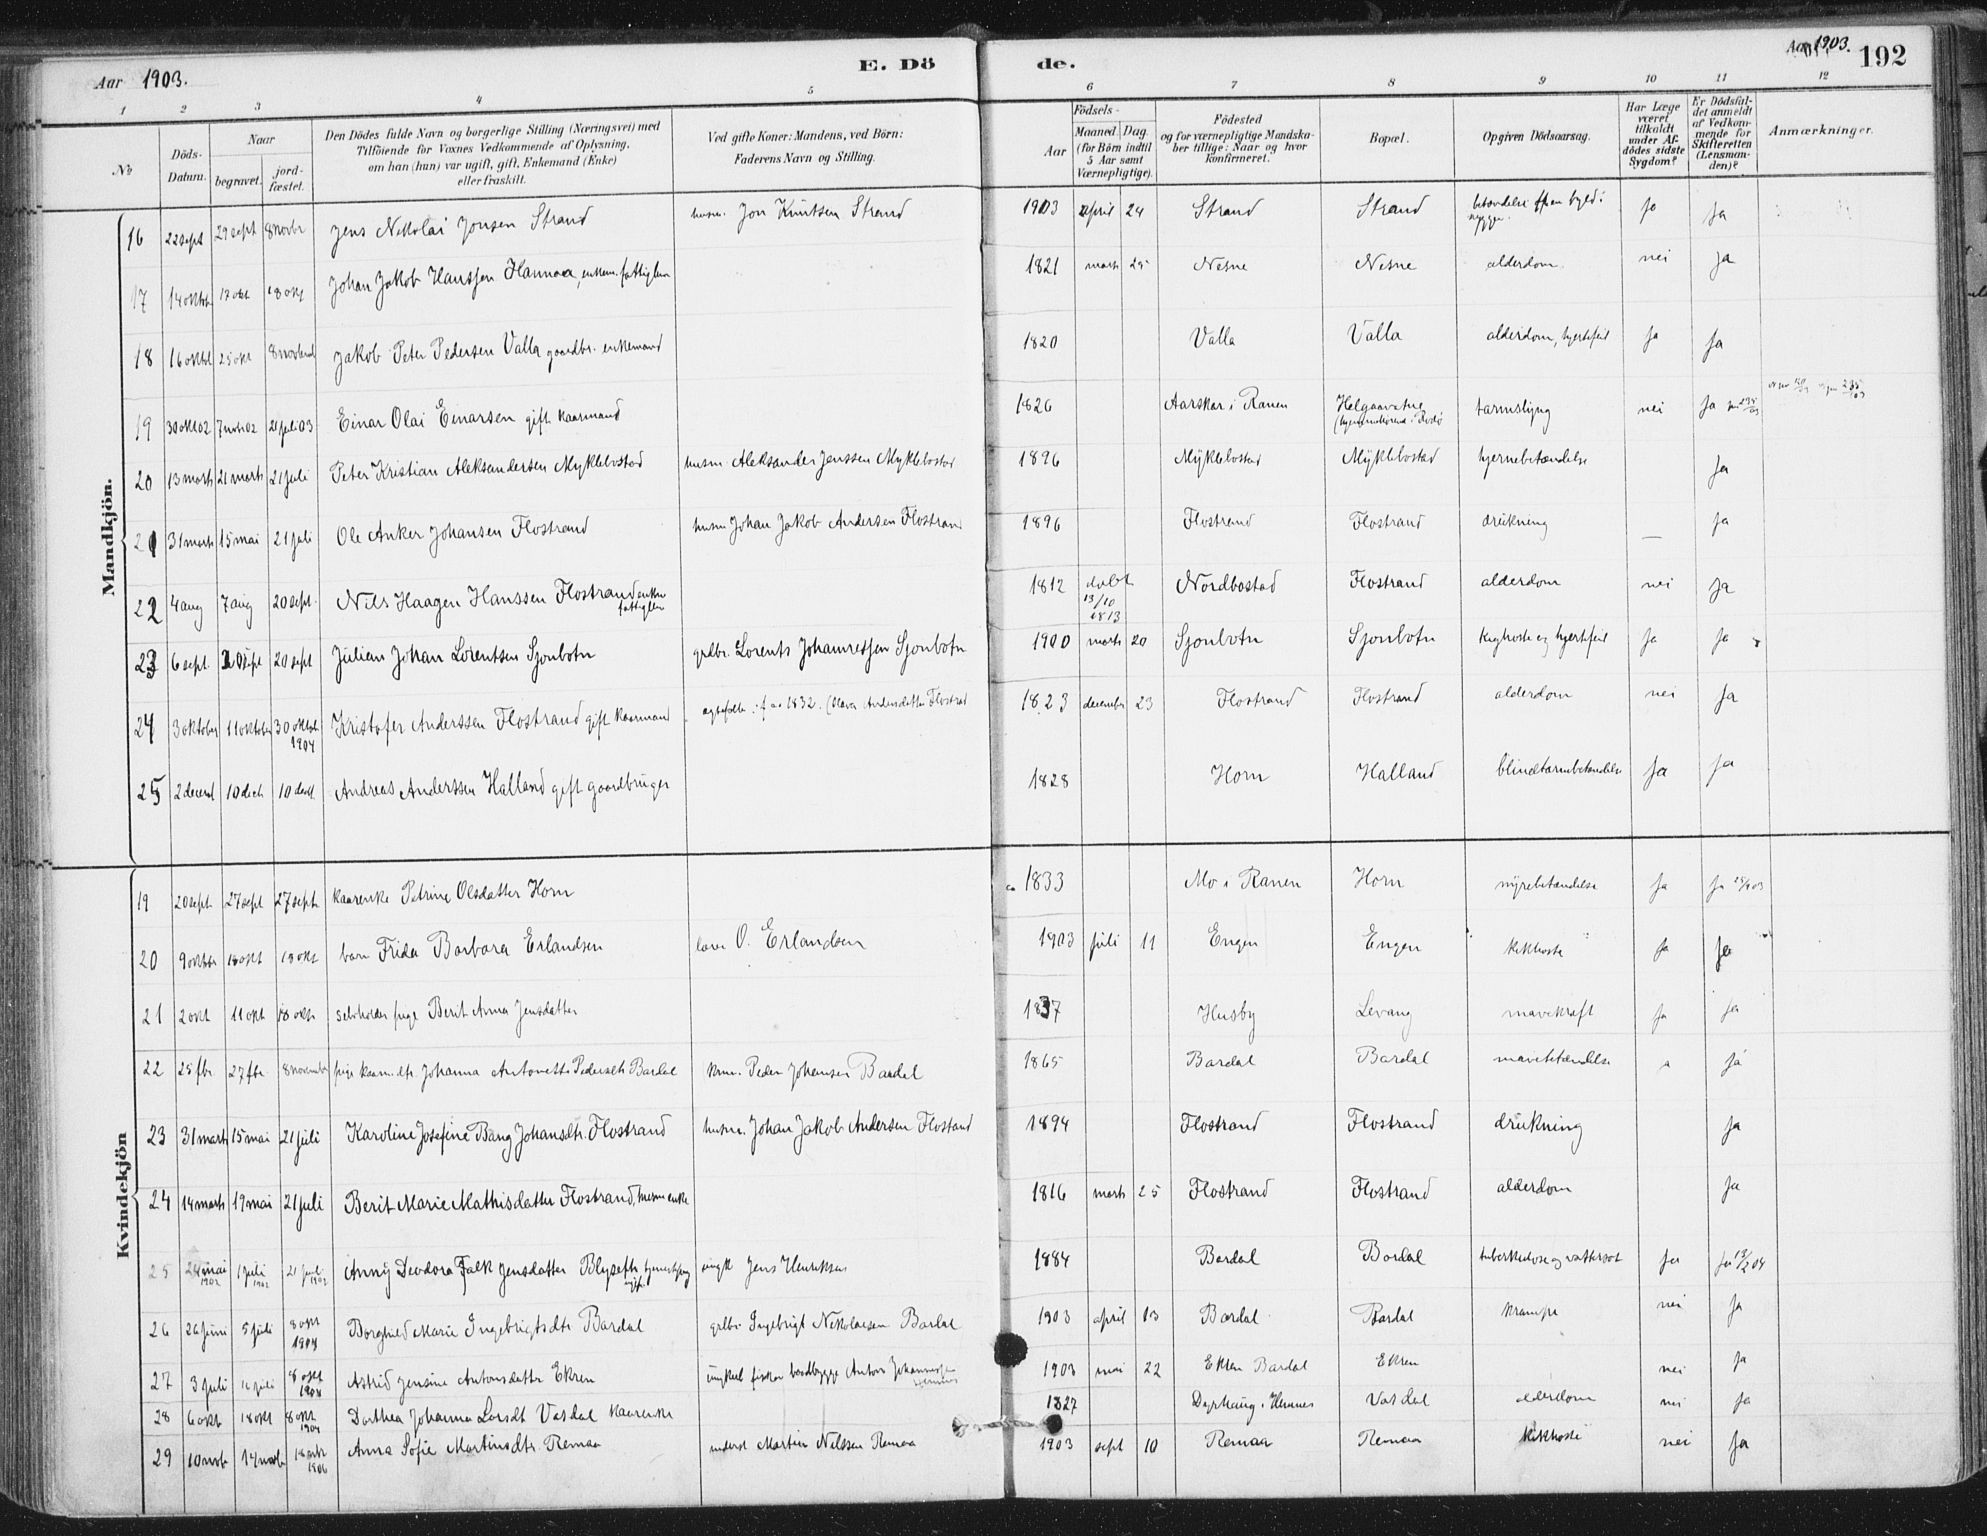 Aar 1903.
E. Dö
de.
Aar 1903.
192
1 2 3 4 5 6 7 8 9 10 11 12
No
Döds-Datum.
Naar
begravet.
jord-fæstet.
Den Dödes fulde Navn og borgerlige Stilling (Næringsvei) med
Tilföiende for Voxnes Vedkommende af Oplysning,
om han (hun) var ugift, gift, Enkemand (Enke)
eller fraskilt.
Ved gifte Koner: Mandens, ved Börn:
Faderens Navn og Stilling.
Födsels-
Aar
Maaned. Dag.
(for Börn indtil
5 Aar samt
Værnepligtige).
Födested
og for værnepligtige Mandska-
ber tillige: Naar og hvor
konfirmeret.
Bopæl.
Opgiven Dödsaarsag.
Har Læge
været
tilkaldt
under Af-
dödes sidste
Sygdom?
Er Dödsfal-
det anmeldt
af Vedkom-
mende for
Skifteretten
(Lensman-
den)?
Anmærkninger.
Mandkjön.
16 22 sept 29 sept 8 novbr Jens Nikolai Jonsen Strand husm. Jon Knutsen Strand 1903 april 24 Strand Strand ja ja
17 14 oktbr 17 okt 18 okt Johan Jakob Hanssen Hannaa, enkem. fattiglem 1821 marts 25 Nesne Nesne alderdom. nei ja
18 16 oktbr 25 okt 8 novbr Jakob Peter Pedersen Valla gaardbr. enkemand 1820 Valla Valla alderdom, hjertefeil ja ja
19 30 okt 02 7 nov 02 21 juli 03 Einar Olai Einarsen gift kaarmand 1826 Aarskar i Ranen tarmslyng nei ja
20 13 marts 21 marts 21 juli Peter Kristian Aleksandersen Myklebostad husm. Aleksander Jenssen Myklebostad 1896 Myklebostad Myklebostad hjernebetændelse ja
21 31 marts 15 mai 21 juli Ole Anker Johansen Flostrand husm Johan Jakob Andersen Flostrand 1896 Flostrand Flostrand drukning — ja
22 4 aug 7 aug 20 sept. Nils Haagen Hanssen Flostrand enkem fattiglem 1812 døbt 13/10 1813 Nordbostad Flostrand alderdom nei ja
23 6 sept. 20 sept 20 sept Julian Johan Lorentsen Sjonbotn grdbr. Lorents Johannessen Sjonbotn 1900 marts 20 Sjonbotn Sjonbotn kighoste og hjertefeil ja ja
24 3 oktober 11 oktober 30 oktob 1904 Kristofer Anderssen Flostrand gift kaarmand 1832. Andersdatter Flostrad 1823 december 23 Flostrand Flostrand alderdom nei ja
25 2 decemb 10 decb 10 decb Andreas Anderssen Halland gift gaardbruger 1828 Horn Halland blindtarmbetændelse ja ja
Kvindekjön
19 20 sept. 27 sept 27 sept kaarenke Petrine Olsdatter Horn ca 1833 Mo i Ranen Horn nyrebetændelse ja ja
20 9 oktbr 18 okt 18 okt barn Frida Barbara Erlandsen O. Erlandsen 1903 juli 11 Engen Engen kikhoste ja ja
21 2 okt 11 okt 18 okt selvholder pige Berit Anna Jensdatter 1837 Husby Levang mavekræft ja ja
22 25 fbr. 27 fbr. 8 november pige kaarm.dtr. Johanna Antonette Pedersdtr Bardal krm. Peder Johansen Bardal 1865 Bardal Bardal mavebetændelse ja
23 31 marts 15 mai 21 juli Karoline Josefine Bang Johansdtr. Flostrand husm. Johan Jakob Andersen Flostrand 1894 Flostrand Flostrand drukning ja
24 14 marts 19 mai 21 juli Berit Marie Mathisdatter Flostrand, husm enke 1816 marts 25 Flostrand Flostrand alderdom ja
25 24 mai 1902 1 juli 1902 21 juli 1902 Anny Deodora Falk Jensdatter ungk Jens Henriksen 1884 Bardal Bardal tuberkulose og vattersot ja ja 13/2 04
26 26 juni 5 juli 8 okt 1904 Borghild Marie Ingebrigtsdtr Bardal grdbr Ingebrigt Nikolaisen Bardal 1903 april 13 Bardal Bardal krampe nei ja
27 3 juli 12 juli 8 okt 1904 Astrid Jensine Antonsdatter Ekren ungkarl fisker baadbygger Anton Johannessen 1903 mai 22 Ekren Bardal Ekren nei ja
28 6 okt 18 okt 8 okt 1904 Dorthea Johanna Larsdt Vasdal kaarenke 1827 Dyrhaug i Hemnes Vasdal alderdom nei ja
29 10 novb 14 novb 18 1906 Anna Sofie Martinsdtr Remaa inderst Martin Nilssen Remaa 1903 sept 10 Remaa Remaa kikhoste nei ja